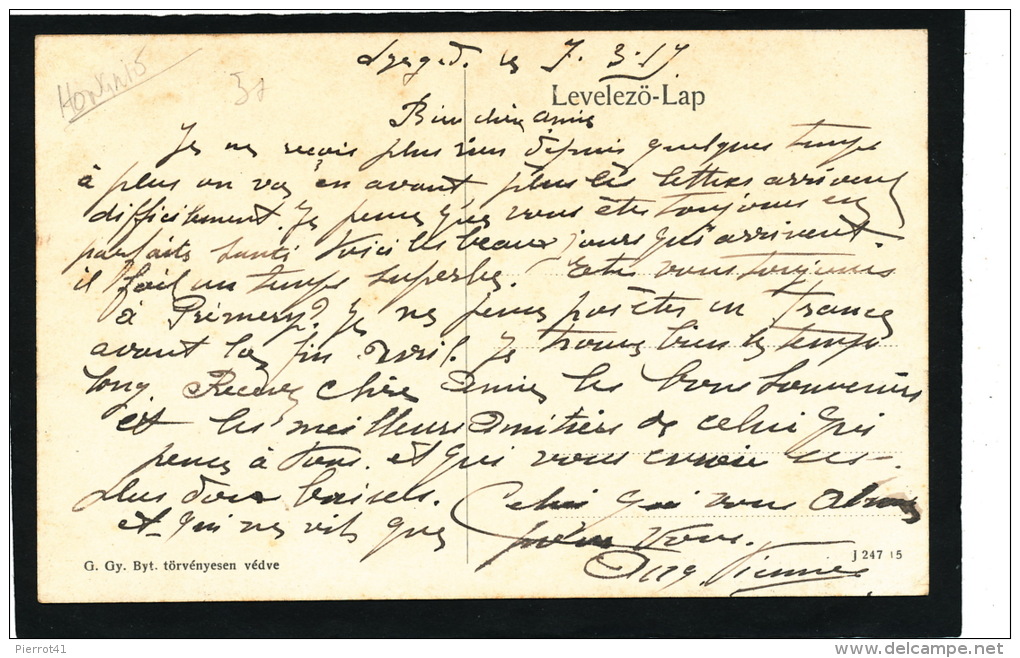 HONGRIE
Szeged. le 7.3.19
Levelezö-Lap
Bien chère amie
Je ne reçois plus rien depuis quelques temps
à plus on va en avant plus les lettres arrivent
difficilement. Je pense que vous êtes toujours en
parfaite santé Voici les beaux jours qui arrivent.
il fait un temps superbe. Etes vous toujours
à Prémery? Je ne pense pas être en France
avant la fin avril. Je trouve bien le temps
long. Recevez chère Amie les bons souvenirs
et les meilleurs Amitiés de celui qui
pense à vous. et qui vous envoie ses
plus doux baisers. Celui qui vous
et qui ne vit que pour vous.
Aug.
G. Gy. Byt. törvényesen védve
J 247 15
Pierrot41
delcampe.net